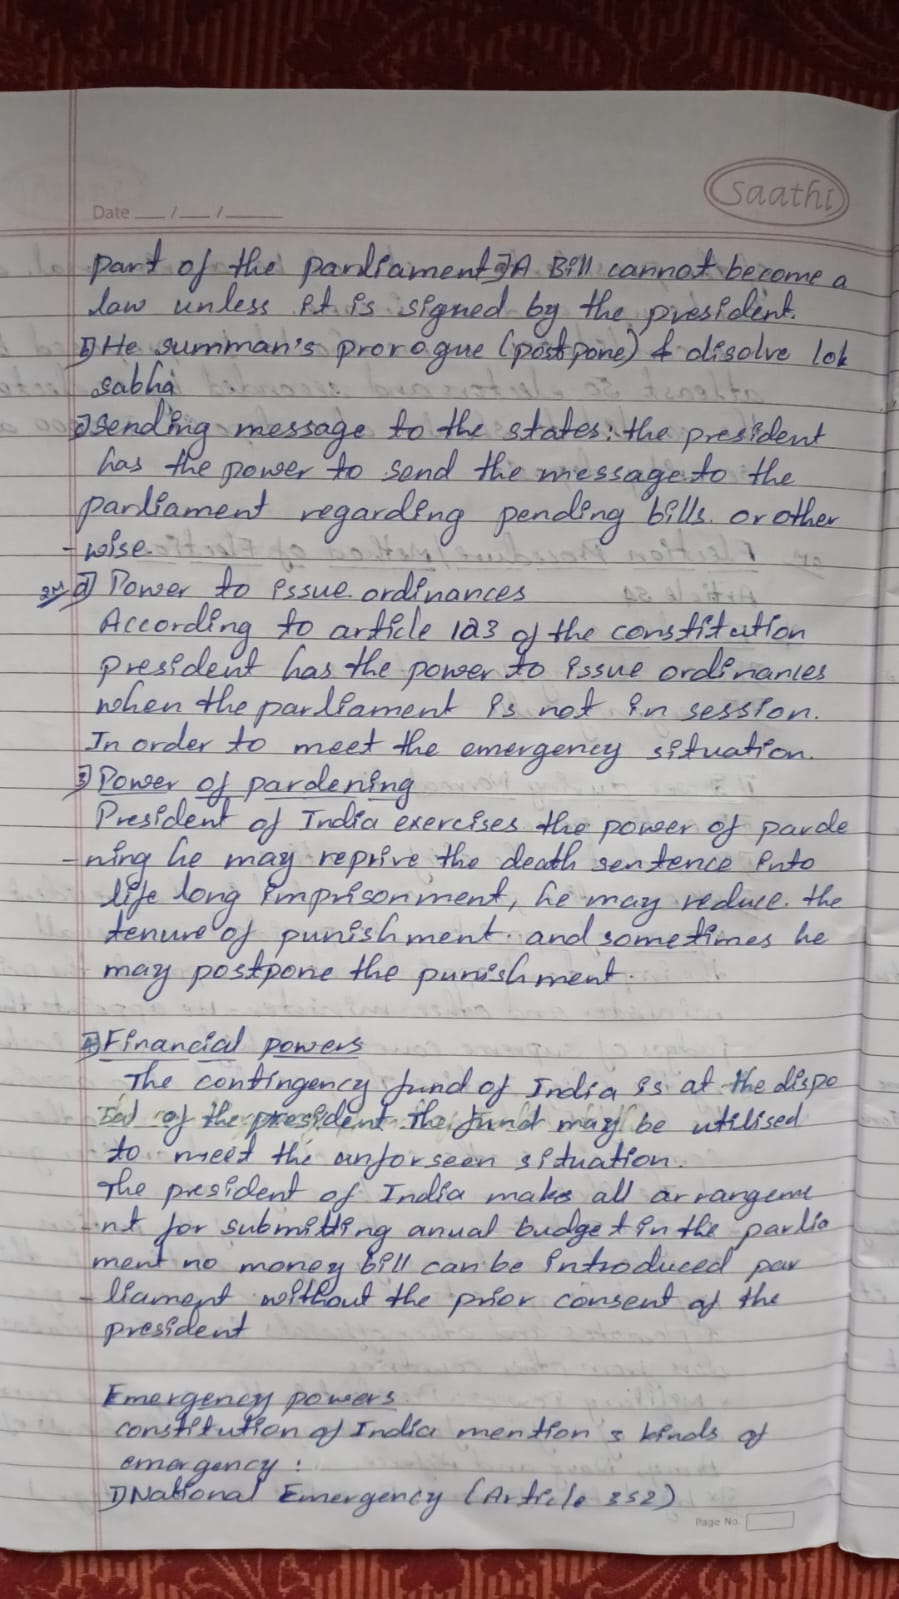 Saathi
Date __/__/____
part of the parliament. A Bill cannot become a
law unless it is signed by the president.
He summan's prorogue (postpone) & disolve lok
sabha
sending message to the states: the president
has the power to send the message to the
parliament regarding pending bills. or other
-wise.
Power to issue ordinances
According to article 123 of the constitution
president has the power to issue ordinances
when the parliament is not in session.
In order to meet the emergency situation.
3) Power of pardening
President of India exercises the power of parde
-ning he may reprive the death sentence into
life long imprisonment, he may reduce the
tenure of punishment. and sometimes he
may postpone the punishment.
Financial powers
The contingency fund of India is at the dispo
sal of the president the fund may be utilised
to meet the unforseen situation.
The president of India makes all arrangeme
-nt for submitting anual budget in the parlia
ment no money bill can be introduced par
-liament without the prior consent of the
president
Emergency powers
constitution of India mention 3 kinds of
emergency :
1) National Emergency (Article 352)
Page No.